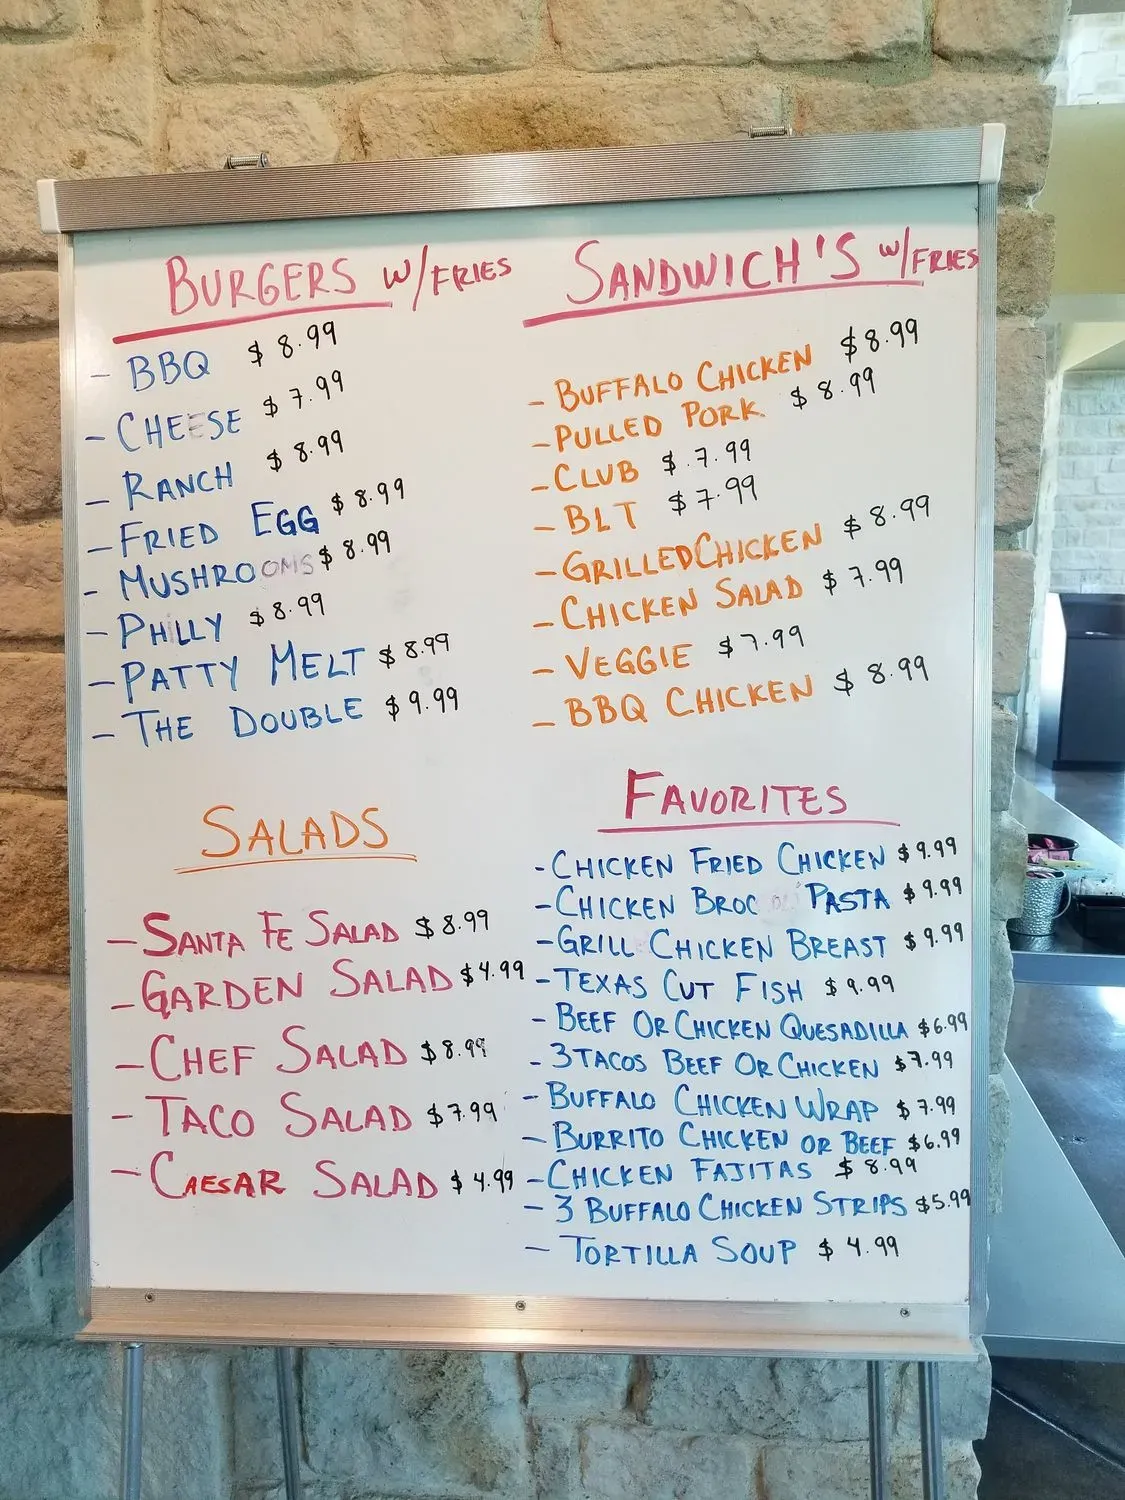 BURGERS w/FRIES
- BBQ $8.99
- CHEESE $7.99
- RANCH $8.99
- FRIED EGG $8.99
- MUSHROOMS $8.99
- PHILLY $8.99
- PATTY MELT $8.99
- THE DOUBLE $9.99
SANDWICH'S w/FRIES
- BUFFALO CHICKEN $8.99
- PULLED PORK. $8.99
- CLUB $.7.99
- BLT $7.99
- GRILLED CHICKEN $8.99
- CHICKEN SALAD $7.99
- VEGGIE $7.99
- BBQ CHICKEN $8.99
SALADS
- SANTA FE SALAD $8.99
- GARDEN SALAD $4.99
- CHEF SALAD $8.99
- TACO SALAD $7.99
- CAESAR SALAD $4.99
FAVORITES
- CHICKEN FRIED CHICKEN $9.99
- CHICKEN BROCOLI PASTA $9.99
- GRILL CHICKEN BREAST $9.99
- TEXAS CUT FISH $9.99
- BEEF OR CHICKEN QUESADILLA $6.99
- 3 TACOS BEEF OR CHICKEN $7.99
- BUFFALO CHICKEN WRAP $7.99
- BURRITO CHICKEN OR BEEF $6.99
- CHICKEN FAJITAS $8.99
- 3 BUFFALO CHICKEN STRIPS $5.99
- TORTILLA SOUP $4.99